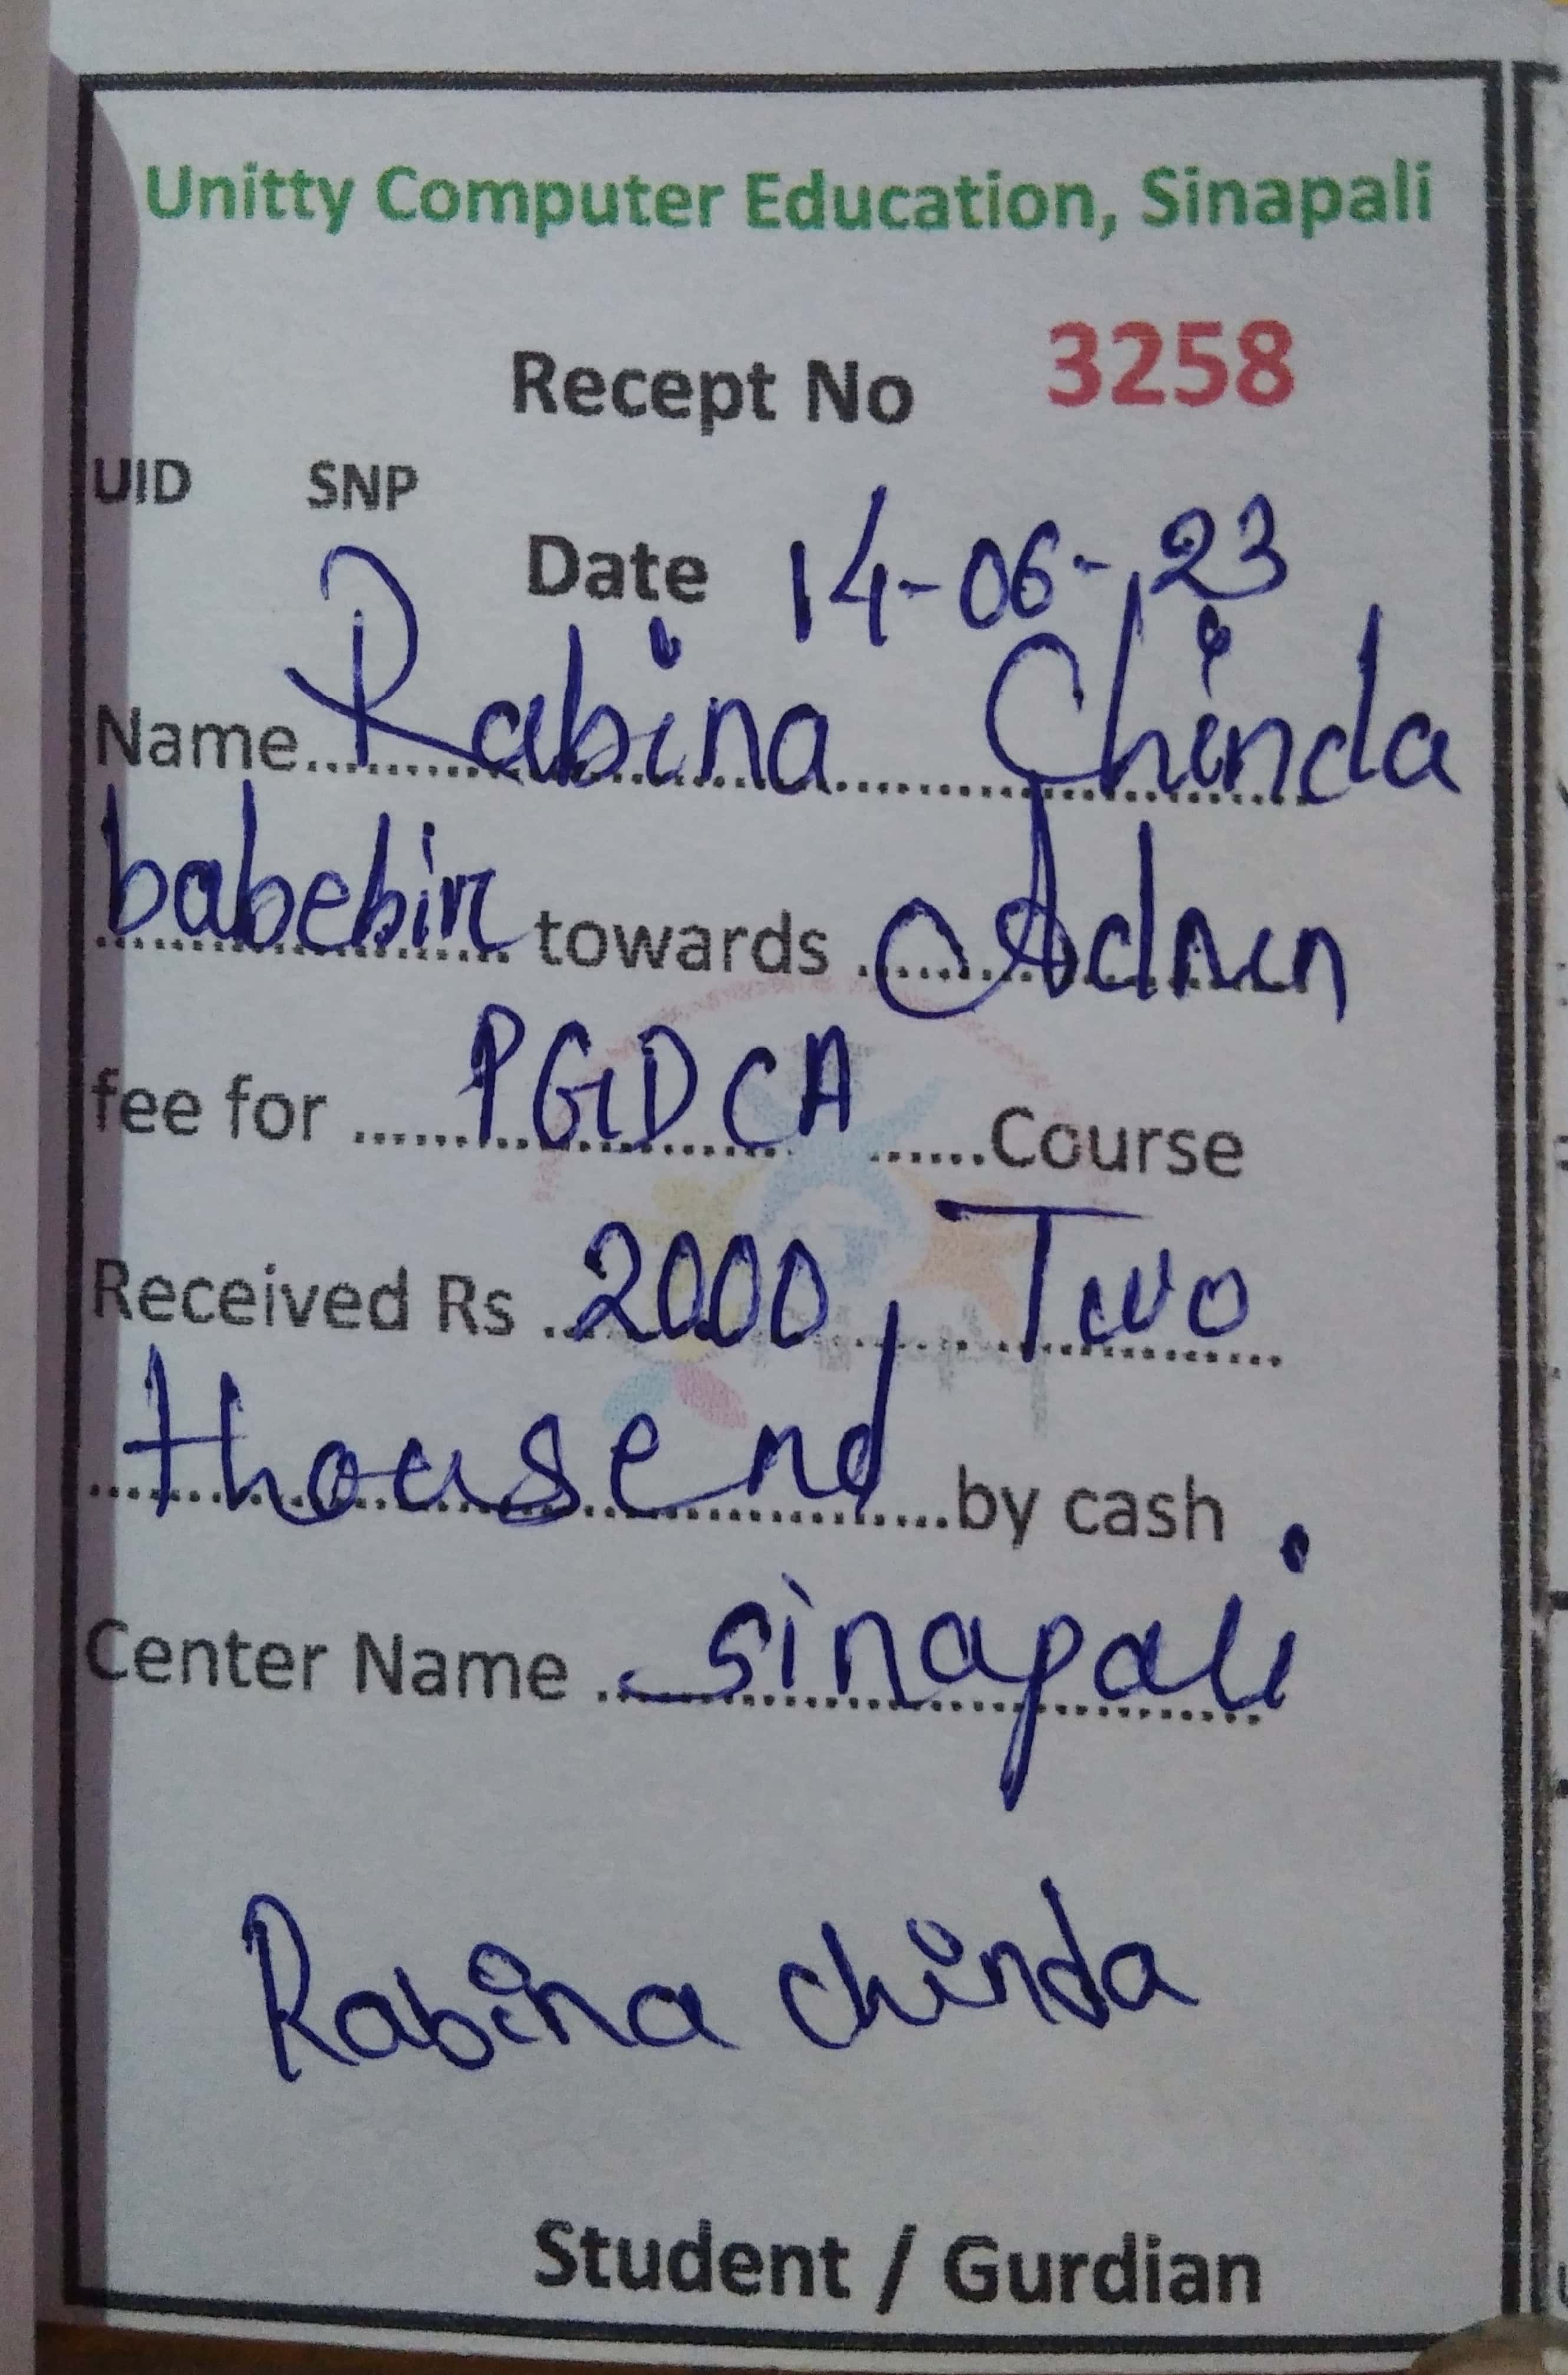 Unitty Computer Education, Sinapali
Recept No 3258
UID SNP
Date 14-06-23
Name Rabina Chinda
babebir towards Admn
fee for PGDCA Course
Received Rs 2000, Two
thousend by cash
Center Name sinapali
Rabina chinda
Student / Gurdian